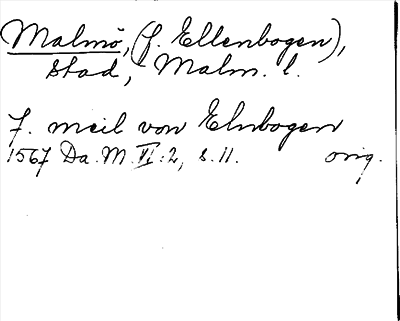 Malmö, (f. Ellenbogen),
stad, Malm. l.
7. meil von Elnbogen
1567 Da. M. VI:2, s. 11. orig.